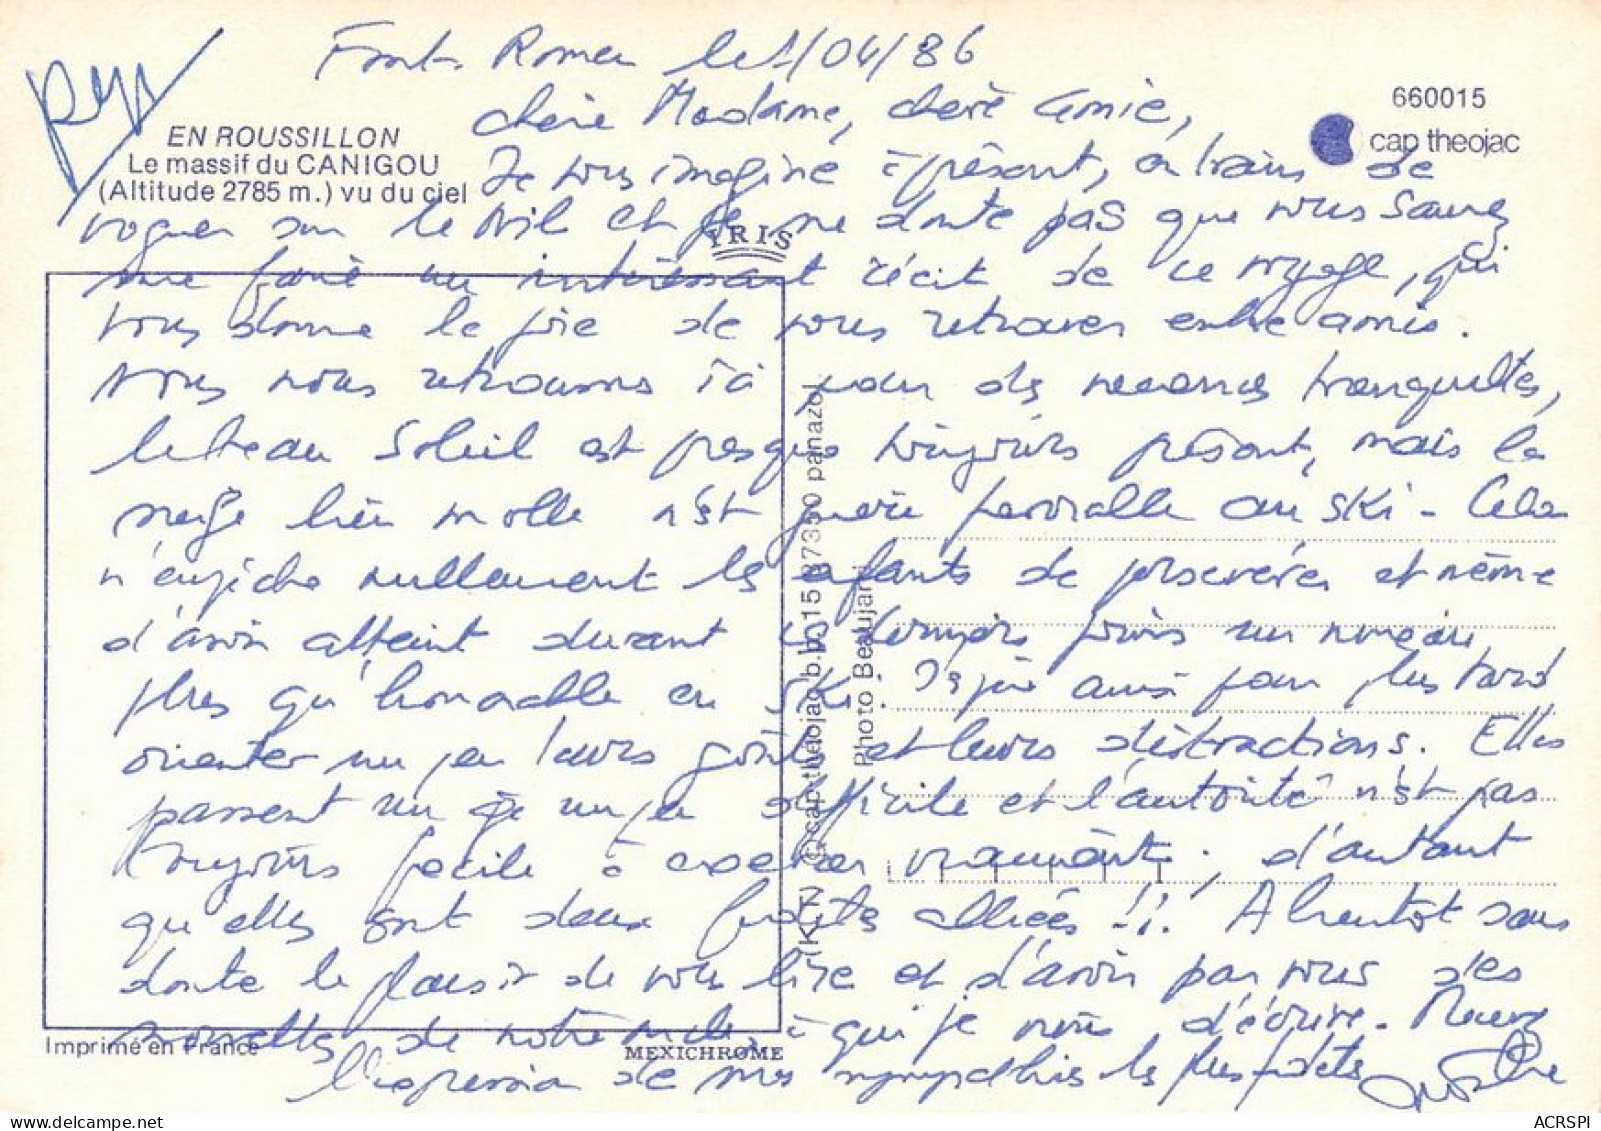 Font-Romeu le 1/04/86
660015
cap theojac
EN ROUSSILLON
Le massif du CANIGOU
(Altitude 2785 m.) vu du ciel
IRIS
Chère Madame, chère Amie,
Je vous imagine à présent, en train de
voguer sur le Nil et je ne doute pas que vous saurez
me faire un intéressant récit de ce voyage, qui
vous donne la joie de vous retrouver entre amis.
Nous nous retrouvons ici pour des vacances tranquilles,
le beau Soleil est presque toujours présent, mais la
neige bien molle n'est guère favorable au ski - Cela
n'empêche nullement les enfants de persévérer et même
d'avoir atteint durant ces derniers jours un niveau
plus qu'honorable en ski. J'espère ainsi pour plus tard
orienter un peu leurs goûts et leurs distractions. Elles
passent un âge un peu difficile et l'autorité n'est pas
toujours facile à exercer vraiment ; d'autant
qu'elles sont deux fortes alliées !!! A bientôt sans
doute le plaisir de vous lire et d'avoir par vous des
nouvelles de notre à qui je viens d'écrire - Recevez
l'expression de mes sympathies les plus
© cap-théojac b.p. 15 87350 panazol
Photo Beaujard
Imprimé en France
MEXICHROME
ACRSPI